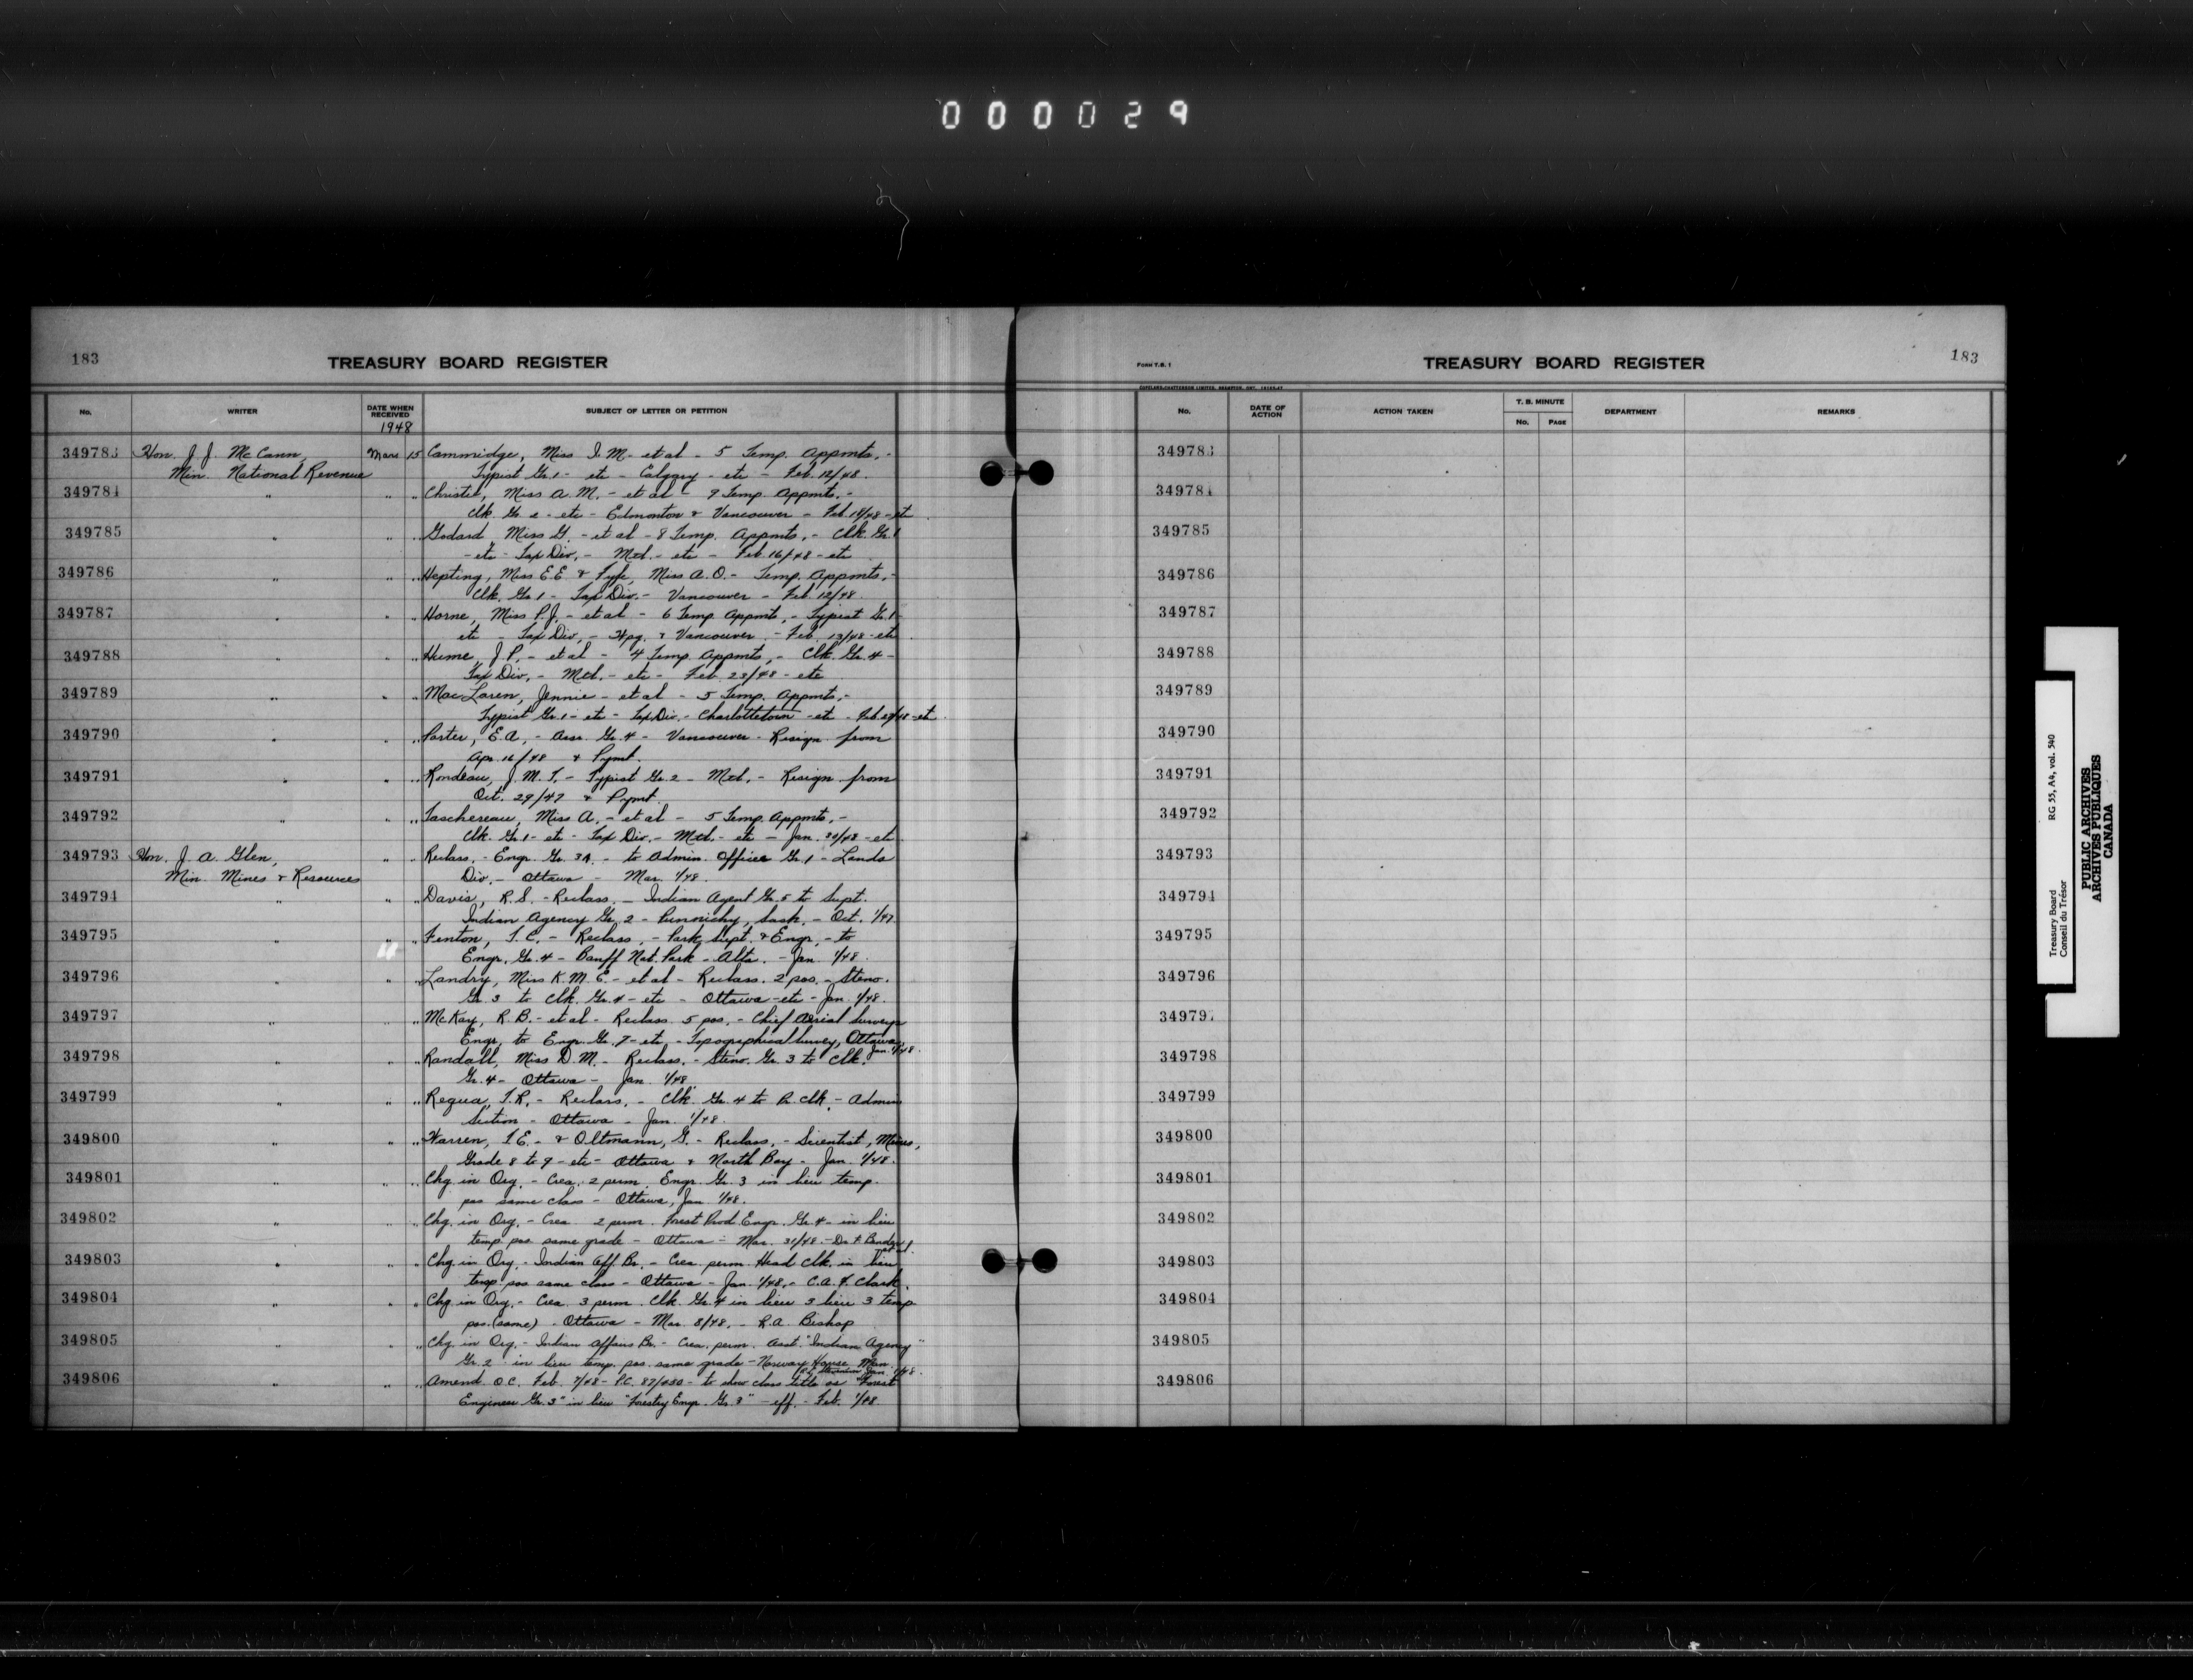 000029
183
TREASURY BOARD REGISTER
No.
WRITER
DATE WHEN RECEIVED
1948
SUBJECT OF LETTER OR PETITION
349783 Hon. J. J. McCann, Mar. 15 Cammidge, Miss I. M. - et al - 5 Temp. Appmts. -
Min. National Revenue Typist Gr. 1 - etc - Calgary - etc - Feb. 12/48.
349784 " " " Christie, Miss A. M. - et al - 9 Temp. Appmts. -
Clk. Gr. 2 - etc - Edmonton & Vancouver - Feb. 18/48 - etc
349785 " " " Godard, Miss G. - et al - 8 Temp. Appmts. - Clk. Gr. 1
- etc - Tax Div. - Mtl. - etc - Feb. 16/48 - etc
349786 " " " Hepting, Miss E.E. & Fyfe, Miss A.O. - Temp. Appmts. -
Clk. Gr. 1 - Tax Div. - Vancouver - Feb. 12/48.
349787 " " " Horne, Miss P.J. - et al - 6 Temp Appmts. - Typist Gr. 1 -
etc - Tax Div. - Wpg. & Vancouver - Feb. 13/48 - etc
349788 " " " Hume, J. P. - et al - 4 Temp. Appmts. - Clk. Gr. 4 -
Tax Div. - Mtl. - etc - Feb. 23/48 - etc
349789 " " " MacLaren, Jennie - et al - 5 Temp. Appmts. -
Typist Gr. 1 - etc - Tax Div. - Charlottetown - etc - Feb. /48 - etc.
349790 " " " Porter, E. A. - Assr. Gr. 4 - Vancouver - Resign. from
Apr. 16/48 & Pymt.
349791 " " " Rondeau, J. M. T. - Typist Gr. 2 - Mtl. - Resign. from
Oct. 29/47 & Pymt.
349792 " " " Taschereau, Miss A. - et al - 5 Temp. Appmts. -
Clk. Gr. 1 - etc - Tax Div. - Mtl. - etc - Jan. 30/48 - etc
349793 Hon. J. A. Glen, " " Reclass. - Engr. Gr. 3A. - to Admin. Officer Gr. 1 - Lands
Min. Mines & Resources Div. - Ottawa - Mar. 1/48.
349794 " " " Davis, R. S. - Reclass. - Indian Agent Gr. 5 to Supt.
Indian Agency Gr. 2 - Punnichy, Sask. - Oct. 1/47
349795 " " " Fenton, T. C. - Reclass. - Park Supt. & Engr. - to
Engr. Gr. 4 - Banff Nat. Park - Alta. - Jan. 1/48.
349796 " " " Landry, Miss K. M. E. - et al - Reclass. 2 pos. - Steno.
Gr. 3 to Clk. Gr. 4 - etc - Ottawa - etc - Jan. 1/48.
349797 " " " McKay, R. B. - et al - Reclass. 5 pos. - Chief Aerial Surveys
Engr. to Engr. Gr. 7 - etc - Topographical Survey, Ottawa,
Jan. 1/48.
349798 " " " Randall, Miss D. M. - Reclass. - Steno. Gr. 3 to Clk.
Gr. 4 - Ottawa - Jan. 1/48.
349799 " " " Requa, T.R. - Reclass. - Clk. Gr. 4 to Pr. Clk. - Admin
Section - Ottawa - Jan. 1/48.
349800 " " " Warren, T. E. - & Oltmann, G. - Reclass. - Scientist, Mines,
Grade 8 to 9 - etc - Ottawa & North Bay - Jan. 1/48.
349801 " " " Chg. in Org. - Crea. 2 perm. Engr. Gr. 3 in lieu temp.
pos same class - Ottawa, Jan. 1/48.
349802 " " " Chg. in Org. - Crea. 2 perm. Forest Prod. Engr. Gr. 4 - in lieu
temp. pos same grade - Ottawa - Mar. 31/48. -
et al.
349803 " " " Chg. in Org. - Indian Aff. Br. - Crea. perm. Head Clk. in lieu
temp. pos same class - Ottawa - Jan. 1/48. - C. A. F. Clark.
349804 " " " Chg. in Org. - Crea. 3 perm. Clk. Gr. 4 in lieu 3 lieu 3 temp.
pos. (same) - Ottawa - Mar. 8/48. - R. A. Bishop
349805 " " " Chg. in Org. - Indian Affairs Br. - Crea. perm. Asst. "Indian Agency"
Gr. 2 in lieu temp. pos. same grade - Norway House, Man.
Jan. 1/48.
349806 " " " Amend. O.C. Feb. 7/48 - P.C. 87/ - to show class title as "Forest
Engineer Gr. 3" in lieu "Forestry Engr. Gr. 3" - eff. - Feb. 1/48.
FORM T.B. 1
TREASURY BOARD REGISTER
183
No.
DATE OF ACTION
ACTION TAKEN
T. B. MINUTE
No.
PAGE
DEPARTMENT
REMARKS
349783
349784
349785
349786
349787
349788
349789
349790
349791
349792
349793
349794
349795
349796
349797
349798
349799
349800
349801
349802
349803
349804
349805
349806
Treasury Board RG 55, A4, vol. 540
Conseil du Trésor
PUBLIC ARCHIVES
ARCHIVES PUBLIQUES
CANADA